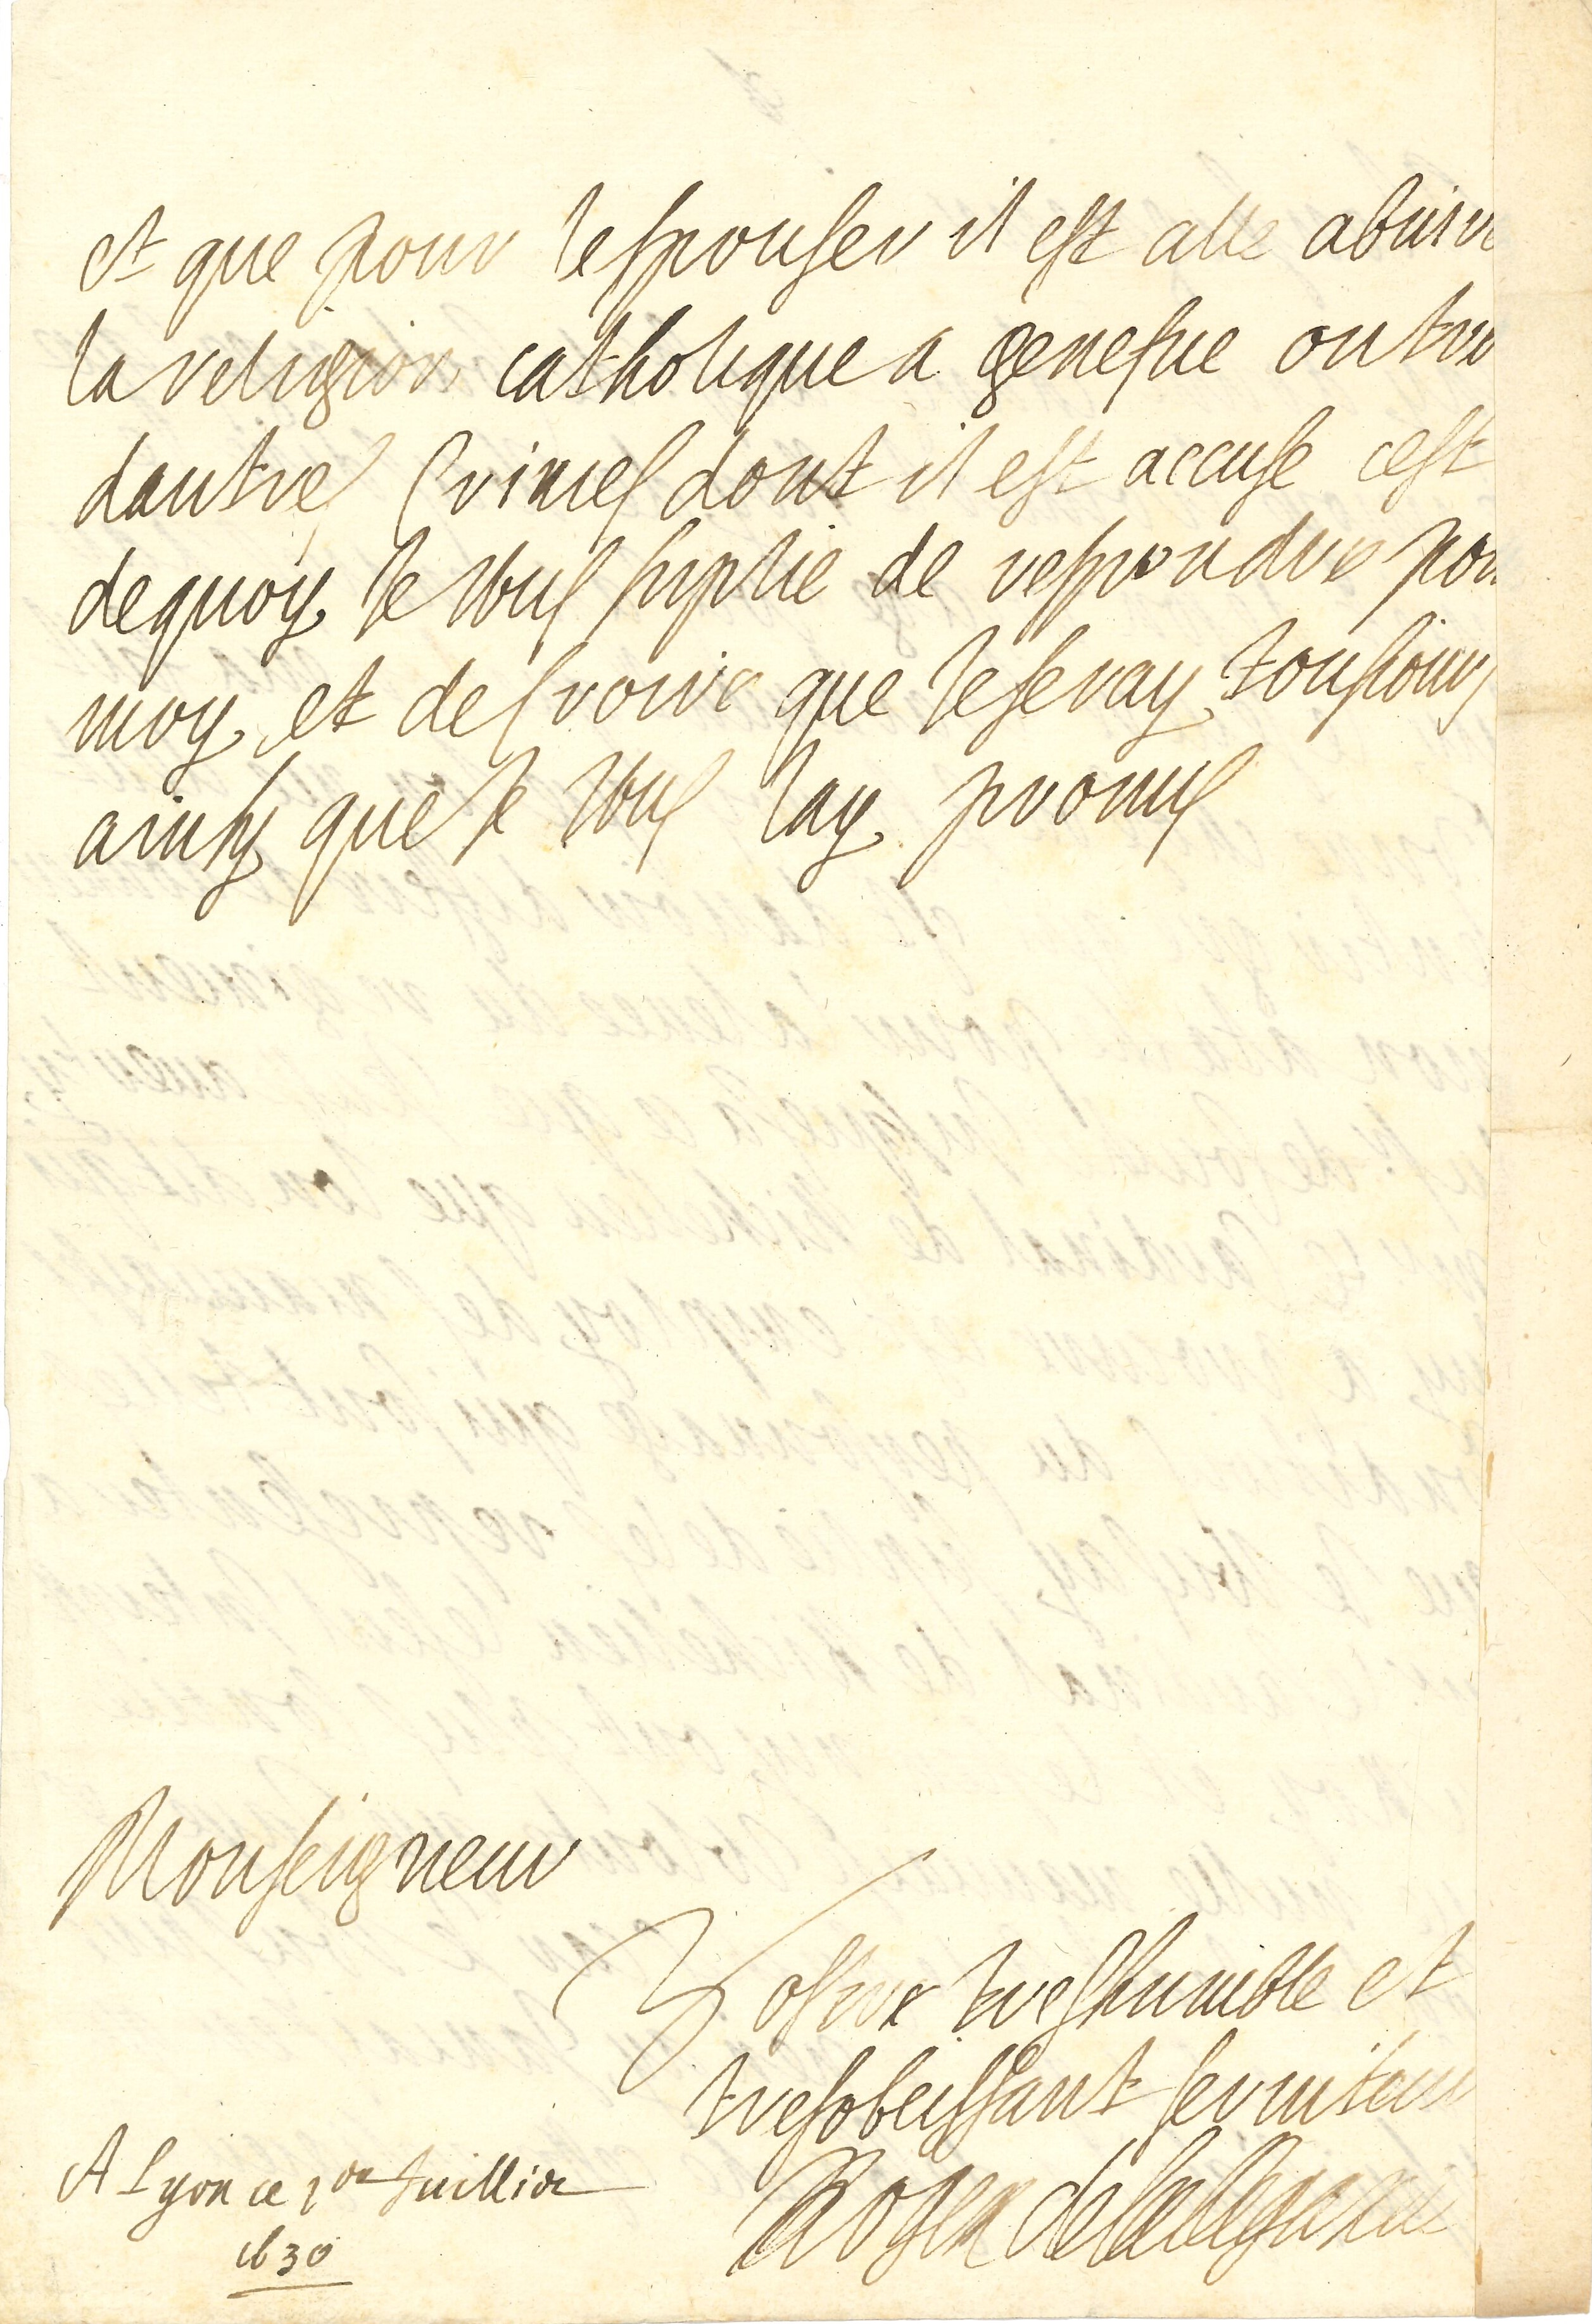 et que pour lespouser il est alle abiure
la religion catholique a genesue outre
dautres Crimes dont il est accuse cest
dequoy Je vous suplie de respondre pour
moy et de Croire que Jeseray tousiours
ainsy que Je vous lay promis
Monseigneur
Vostre treshumble et
tresobeissant seruiteur
Roger de Bellegarde
A Lyon ce 1er Juillier
1630